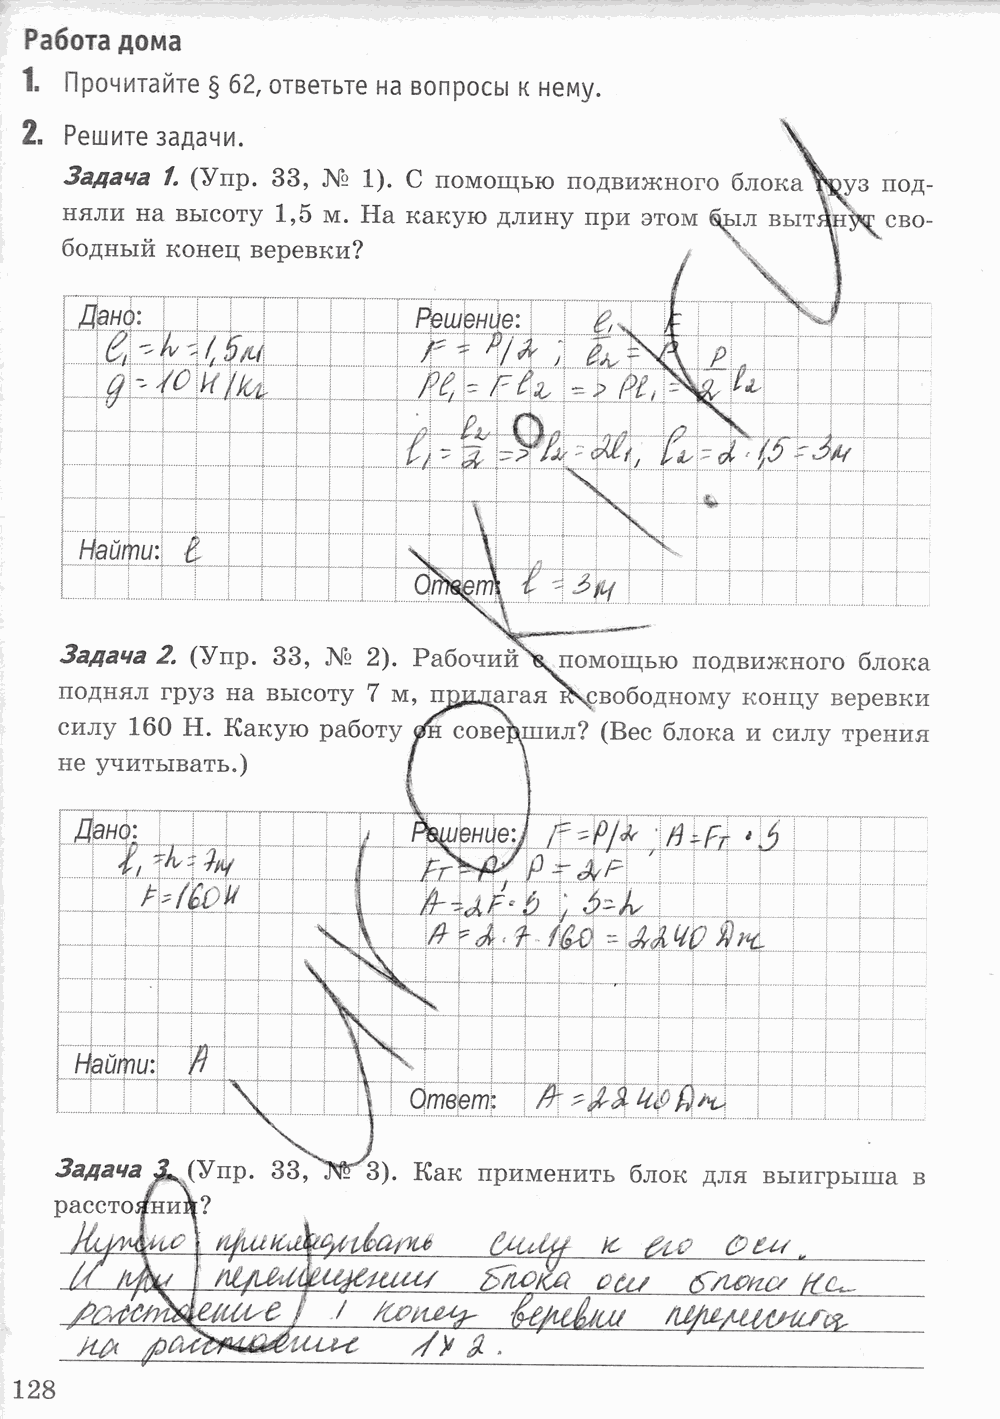 Работа дома
1. Прочитайте § 62, ответьте на вопросы к нему.
2. Решите задачи.
Задача 1. (Упр. 33, № 1). С помощью подвижного блока груз под-
няли на высоту 1,5 м. На какую длину при этом был вытянут сво-
бодный конец веревки?
Дано:
l₁ = h = 1,5 м
g = 10 Н/кг
Найти: l
Решение:
F = P/2 ; l₁/l₂ = F/P
Pl₁ = Fl₂ => Pl₁ = P/2 l₂
l₁ = l₂/2 => l₂ = 2l₁, l₂ = 2 · 1,5 = 3м
Ответ: l = 3м
Задача 2. (Упр. 33, № 2). Рабочий с помощью подвижного блока
поднял груз на высоту 7 м, прилагая к свободному концу веревки
силу 160 Н. Какую работу он совершил? (Вес блока и силу трения
не учитывать.)
Дано:
l₁ = h = 7м
F = 160 Н
Найти: A
Решение: F = P/2 ; A = Fт · S
Fт = P; P = 2F
A = 2F · S ; S = h
A = 2 · 7 · 160 = 2240 Дж
Ответ: A = 2240 Дж
Задача 3. (Упр. 33, № 3). Как применить блок для выигрыша в
расстоянии?
Нужно прикладывать силу к его оси.
И при перемещении блока оси блока на
расстояние 1 конец веревки переместится
на расстояние 1 * 2.
128